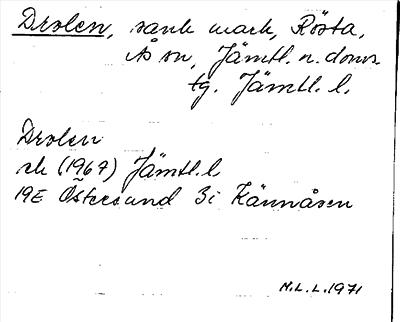 Drolen, sank mark, Rösta,
Ås sn, Jämtl. n. doms.
tg. Jämtl. l.
Drolen
rek (1967) Jämtl. l
19E Östersund 3i Kännåsen
M.L.L. 1971